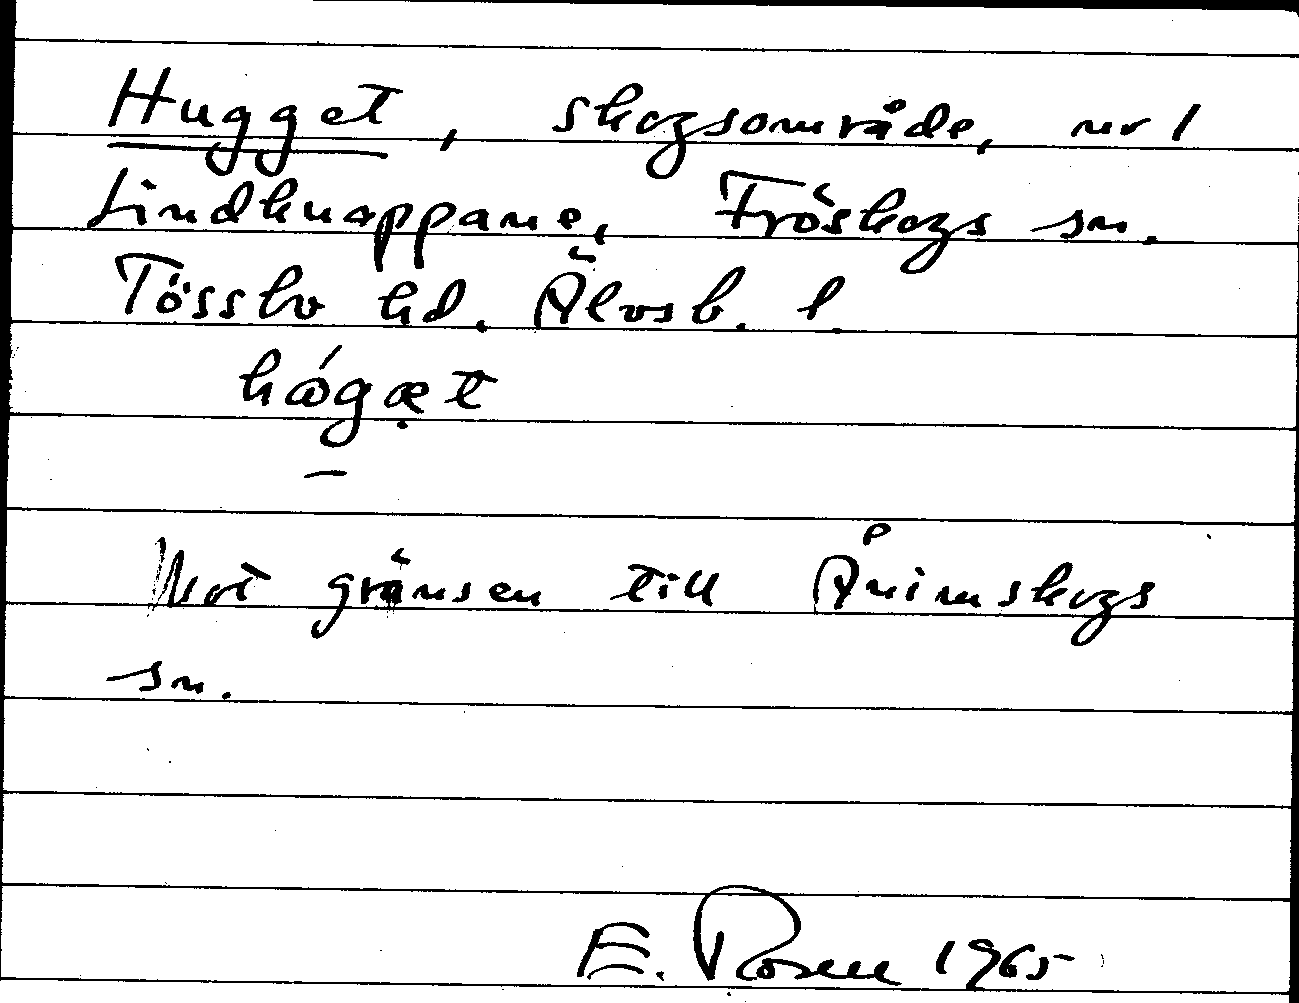 Hugget, skogsområde, nr 1
Lindknappane, Fröskogs sn.
Tössbo hd. Älvsb. l.
Mot gränsen till Ånimskogs
sn.
E. Rosell 1965